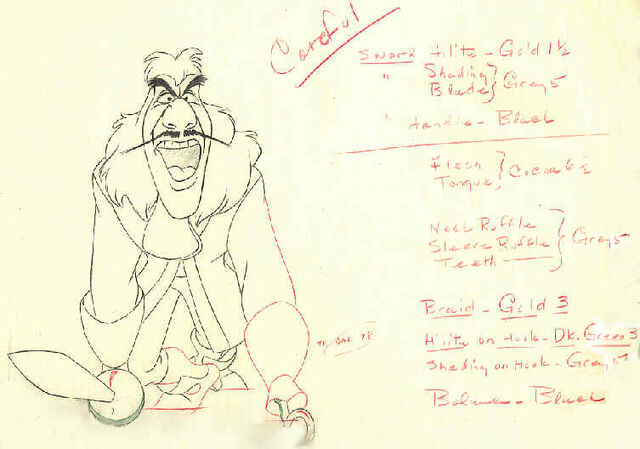 Careful
Sword Hilite - Gold 1½
" Shading
Blade } Grey 5
" Handle - Black
Flesh
Tongue } Cocoa 6½
Neck Ruffle
Sleeve Ruffle } Grey 5
Teeth
Braid - Gold 3
Hilite on Hook - DK. Green 3
Shading on Hook - Grey 5
- Black